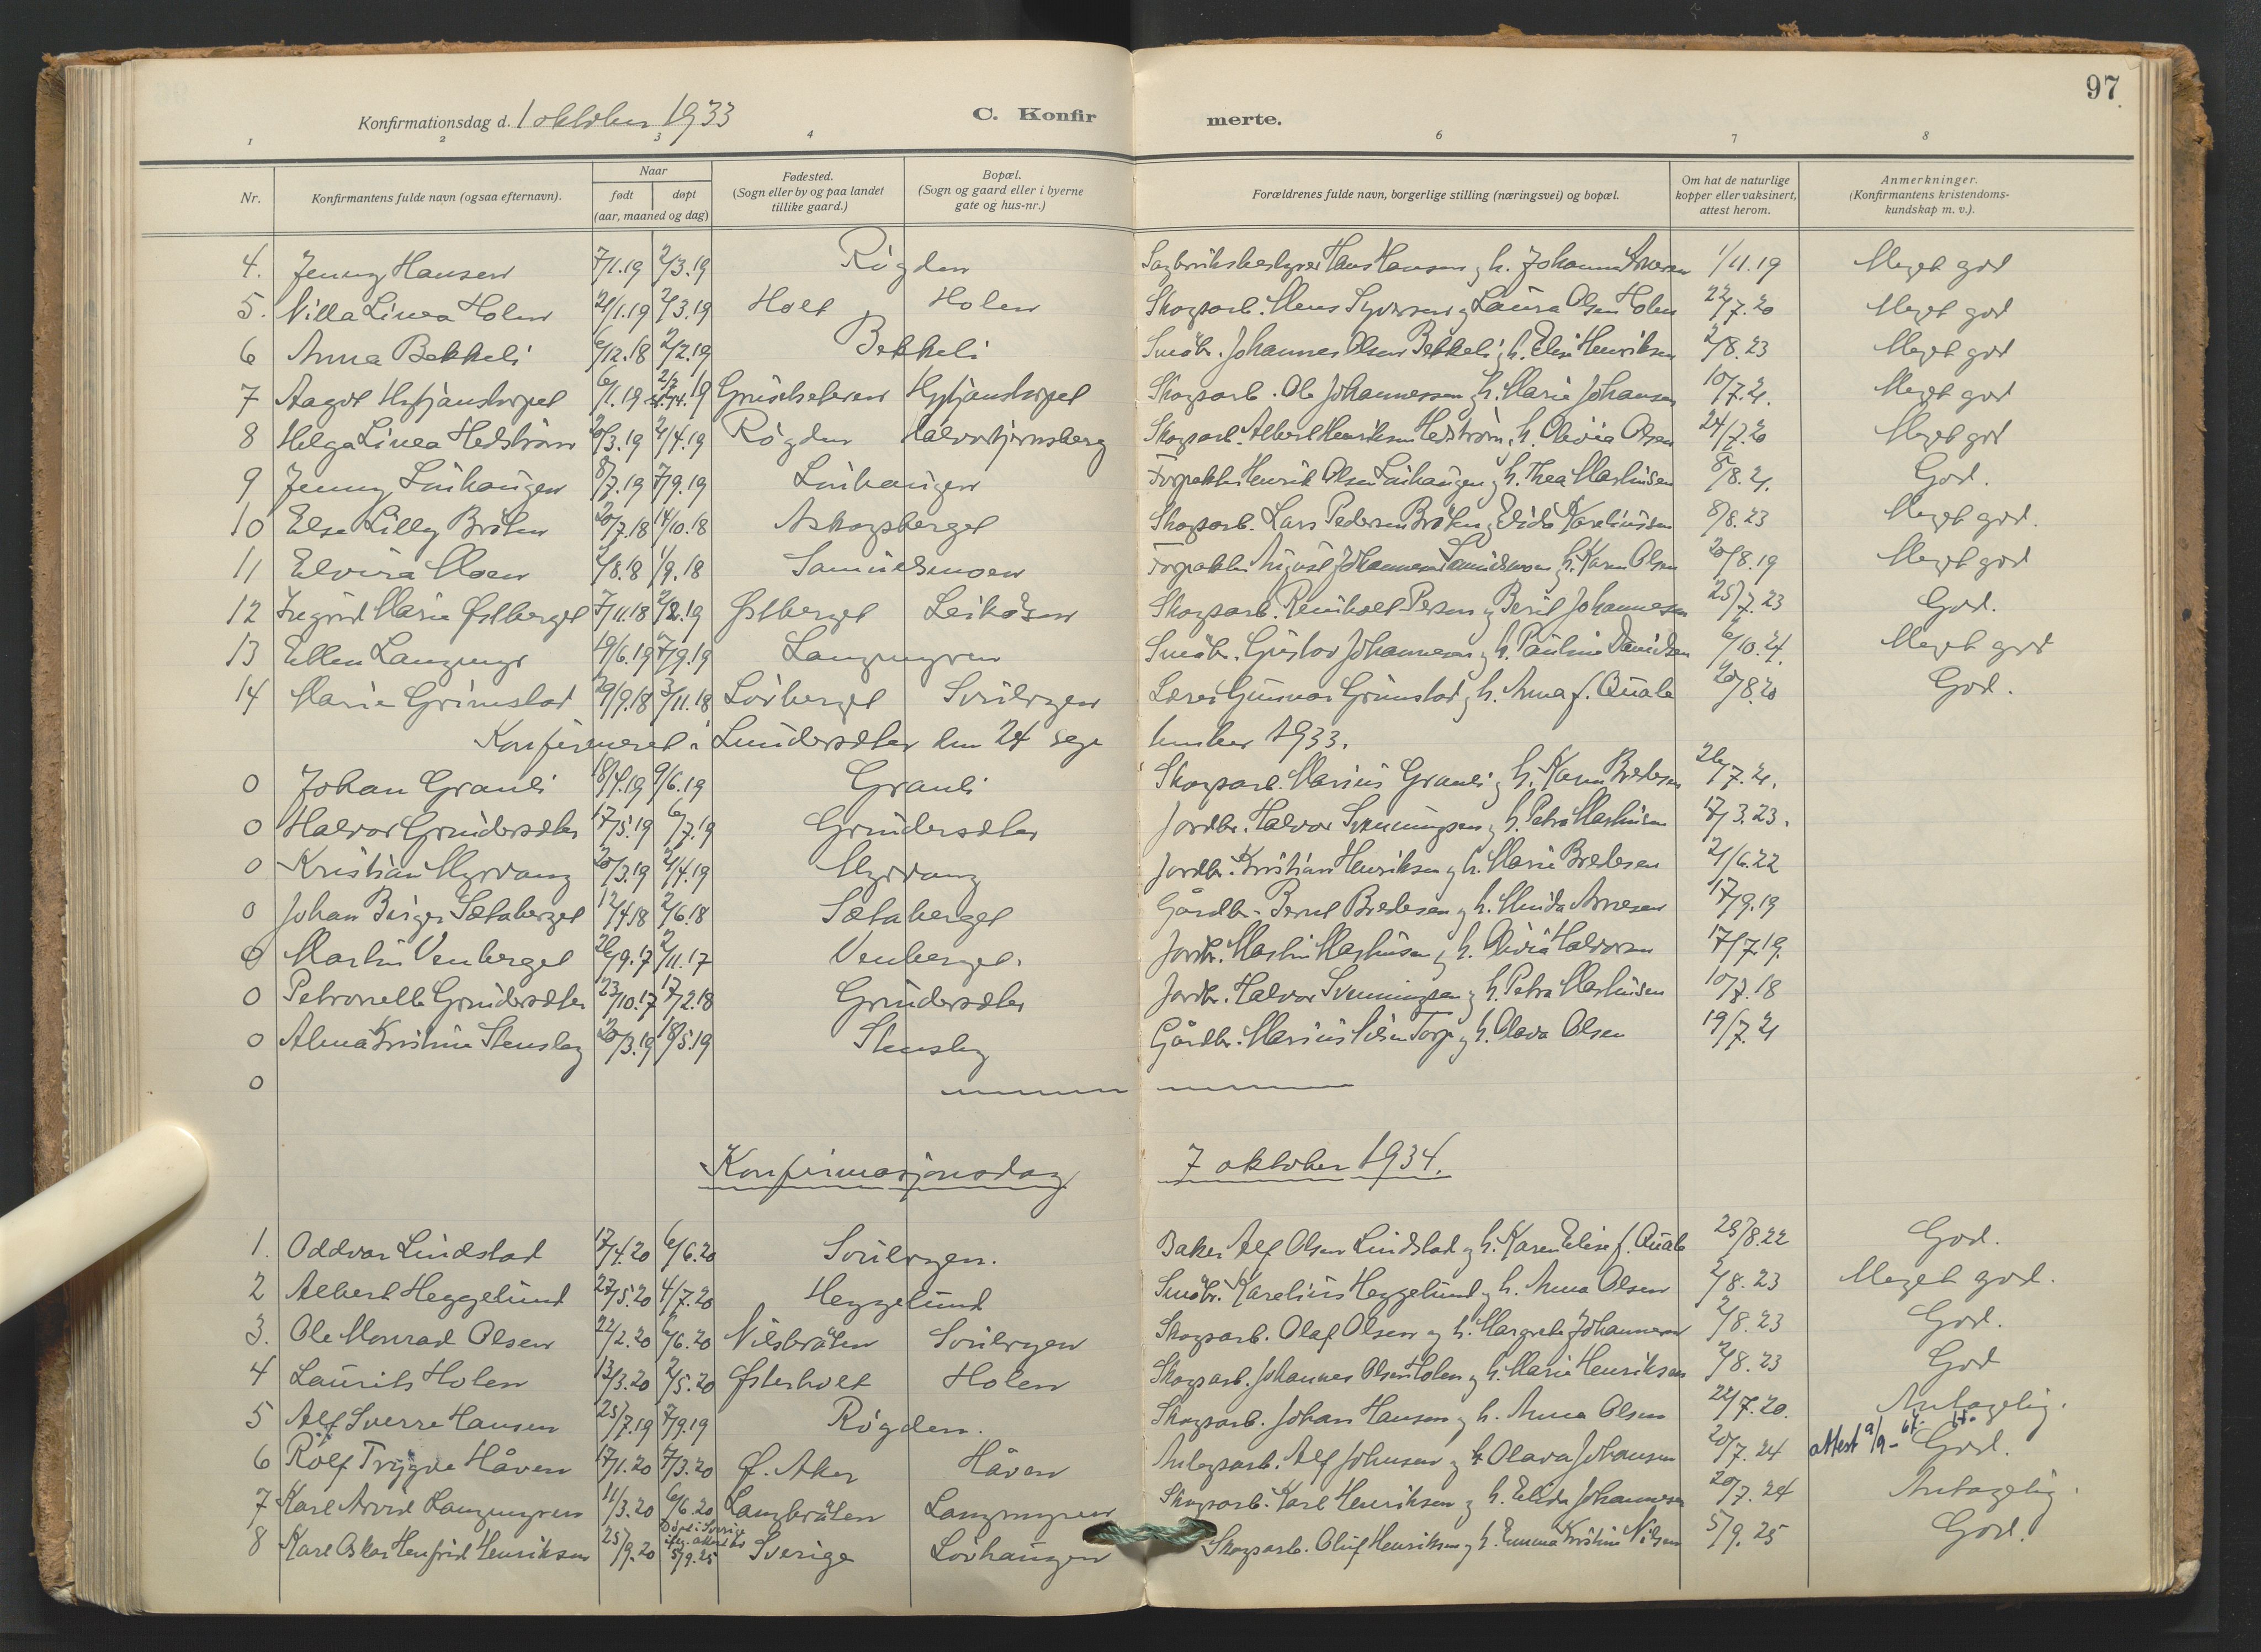 97
Konfirmationsdag d. 1 oktober 1933 C. Konfir merte.
1 2 3 4 6 7 8
Nr. Konfirmantens fulde navn (ogsaa efternavn). Naar født døpt (aar, maaned og dag) Fødested. (Sogn eller by og paa landet tillike gaard.) Bopæl. (Sogn og gaard eller i byerne gate og hus-nr.) Forældrenes fulde navn, borgerlige stilling (næringsvei) og bopæl. Om hat de naturlige kopper eller vaksinert, attest herom. Anmerkninger. (Konfirmantens kristendoms-kundskap m. v.).
4. Jenny Hansen 7/1.19 2/3.19 Røgden Hans Hansen og h. Johanne 1/11.19 Meget god
5. Villa Linea Holen 21/1.19 2/3.19 Holt Holen Skogsarb. Mons Syversen og Laura Olsen Holen 22/7.20 Meget god
6 Anna Bekkeli 6/12.18 2/2.19 Bekkeli Småbr. Johannes Olsen Bekkeli og h. Elise Henriksen 2/8.23 Meget god
7 Aagot Hytjanstorpet 6/1.19 Grueseteren Hytjanstorpet Skogsarb. Ole Johannessen og h. Marie Johansen 10/7.21. Meget god
8 Helga Linea Hedstrøm 20/3.19 21/4.19 Røgden Halvortjernsberg Skogsarb. Albert Henriksen Hedstrøm, h. Olivia Olsen 24/7.20 Meget god
9 Jenny Linhaugen 8/7.19 7/9.19 Linhaugen Forpakter Henrik Olsen Linhaugen og h. Thea Mathisen 8/8.21. God.
10 Else Lilly Bråten 20/7.18 14/10.18 Askogsberget Skogsarb. Lars Pedersen Bråten og Elida Karelinisen 8/8.23 Meget god.
11 Elvira Moen 2/8.18 1/9.18 Samuelsmoen Forpakter August Johannesen Samuelsmoen og h. Karen Olsen 20/8.19 Meget god
12 Ingrid Marie Østberget 7/11.18 2/2.19 Østberget Leikåsen Skogsarb. Reinholt Persen og Berit Johannesen 25/7.23 God.
13 Ellen Langmyr 19/6.19 7/9.19 Langmyren Småbr. Gustav Johannesen og h. Pauline Davidsen 6/10.21. Meget god
14 Marie Grimstad 29/9.18 3/11.18 Løvberget Svullryen Lærer Gunnar Grimstad og h. Anna f. Quale 20/8.20 God.
Konfirmeret i Lundersæter den 24 september 1933.
0 Johan Granli 18/4.19 9/6.19 Granli Skogsarb. Marius Granli og h. Karen Bredesen 26/7.21.
0 Halvor Grundersæter 17/5.19 6/7.19 Grundersæter Jordbr. Halvor Svenningsen og h. Petra Mathisen 17/3.23.
0 Kristian Myrvang 20/3.19 21/4.19 Myrvang Jordbr. Kristian Henriksen og h. Marie Bredesen 21/6.22
0 Johan Birger Sætaberget 12/4.18 2/6.18 Sætaberget Gårdbr. Bernt Bredesen og h. Minda Arnesen 17/9.19
0 Martin Venberget 26/9.17 2/11.17 Venberget. Jordbr. Martin Mathisen og h. Olivia Halvorsen 17/7.19.
0 Petronelle Grundersæter 23/10.17 17/2.18 Grundersæter Jordbr. Halvor Svenningsen og h. Petra Mathisen 10/7.18
0 Alma Kristine Stensby 20/3.19 18/5.19 Stensby Gårdbr. Marius Nilsen Torp og h. Olava Olsen 19/7.21
0
Konfirmasjonsdag 7 oktober 1934.
1. Oddvar Lindstad 17/4.20 6/6.20 Svullryen. Baker Alf Olsen Lindstad og h. Karen Elise f. Quale 29/8.22 God.
2 Albert Heggelund 27/5.20 4/7.20 Heggelund Småbr. Karelius Heggelund og h. Anna Olsen 2/8.23 Meget god.
3. Ole Monrad Olsen 22/2.20 6/6.20 Nilsbråten Svullryen Skogsarb. Olaf Olsen og h. Margrete Johannesen 2/8.23 God.
4 Laurits Holen 13/3.20 2/5.20 Østerholt Holen Skogsarb. Johannes Olsen Holen og h. Marie Henriksen 2/8.23 God
5 Alf Sverre Hansen 25/7.19 7/9.19 Røgden. Skogsarb. Johan Hansen og h. Anna Olsen 22/7.20. Antagelig.
6 Rolf Trygve Håven 17/1.20 7/3.20 Ø. Aker Håven Anlegsarb. Alf Johnsen og h. Olava Johansen 20/7.24 attest 9/9-64. God.
7 Karl Arvid Langmyren 11/3.20 6/6.20 Langbråten Langmyren Skogsarb. Karl Henriksen og h. Elida Johannesen 20/7.24 Antagelig.
8 Karl Oskar Henfrid Henriksen 25/9.20 Døpt i Sverige iflg. attest 5/9.25 Sverige Lovhaugen Skogsarb. Oluf Henriksen og h. Emma Kristine Nilsen 5/9.25 God.